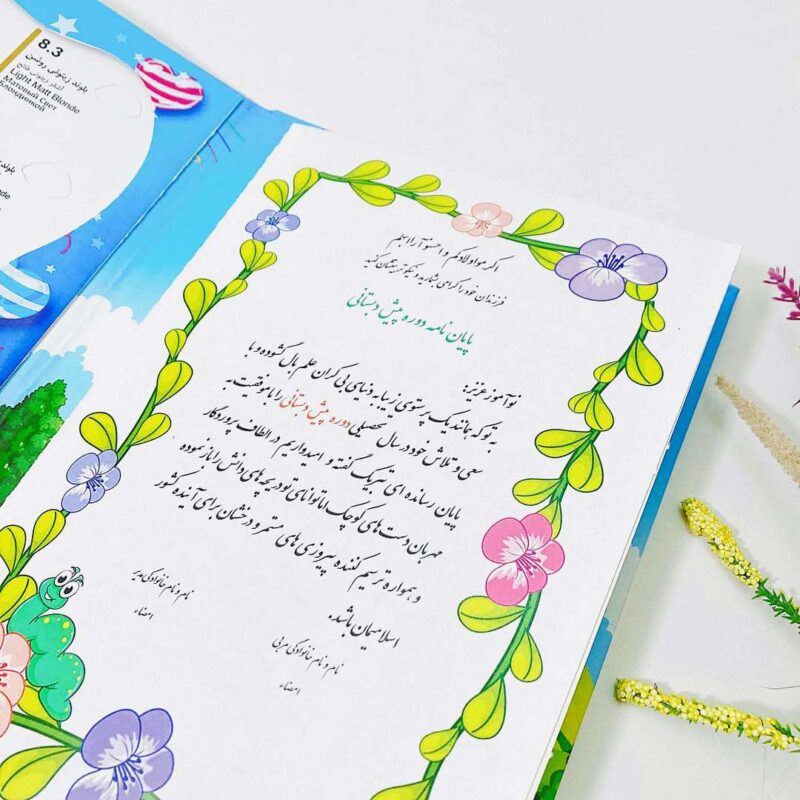 8.3
بلوند زیتونی روشن
أشقر زيتوني فاتح
Light Matt Blonde
Матовый Свет
блондинкой
اکرموا اولادکم و احسنوا آدابهم
فرزندان خود را گرامی بدارید و نیکو تربیتشان کنید
پایان نامه دوره پیش دبستانی
نوآموز عزیز:
به تو که همانند یک پرستوی زیبا به دنیای بی کران علم بال گشوده و با
سعی و تلاش خود در سال تحصیلی دوره پیش دبستانی را با موفقیت به
پایان رسانده ای تبریک گفته و امیدواریم در الطاف پروردگار
مهربان دست های کوچک اما توانای تو دریچه های دانش را باز نموده
و همواره ترسیم کننده پیروزی های مستمر و درخشان برای آینده کشور
اسلامیمان باشد.
نام و نام خانوادگی مربی
امضاء
نام و نام خانوادگی مدیر
امضاء